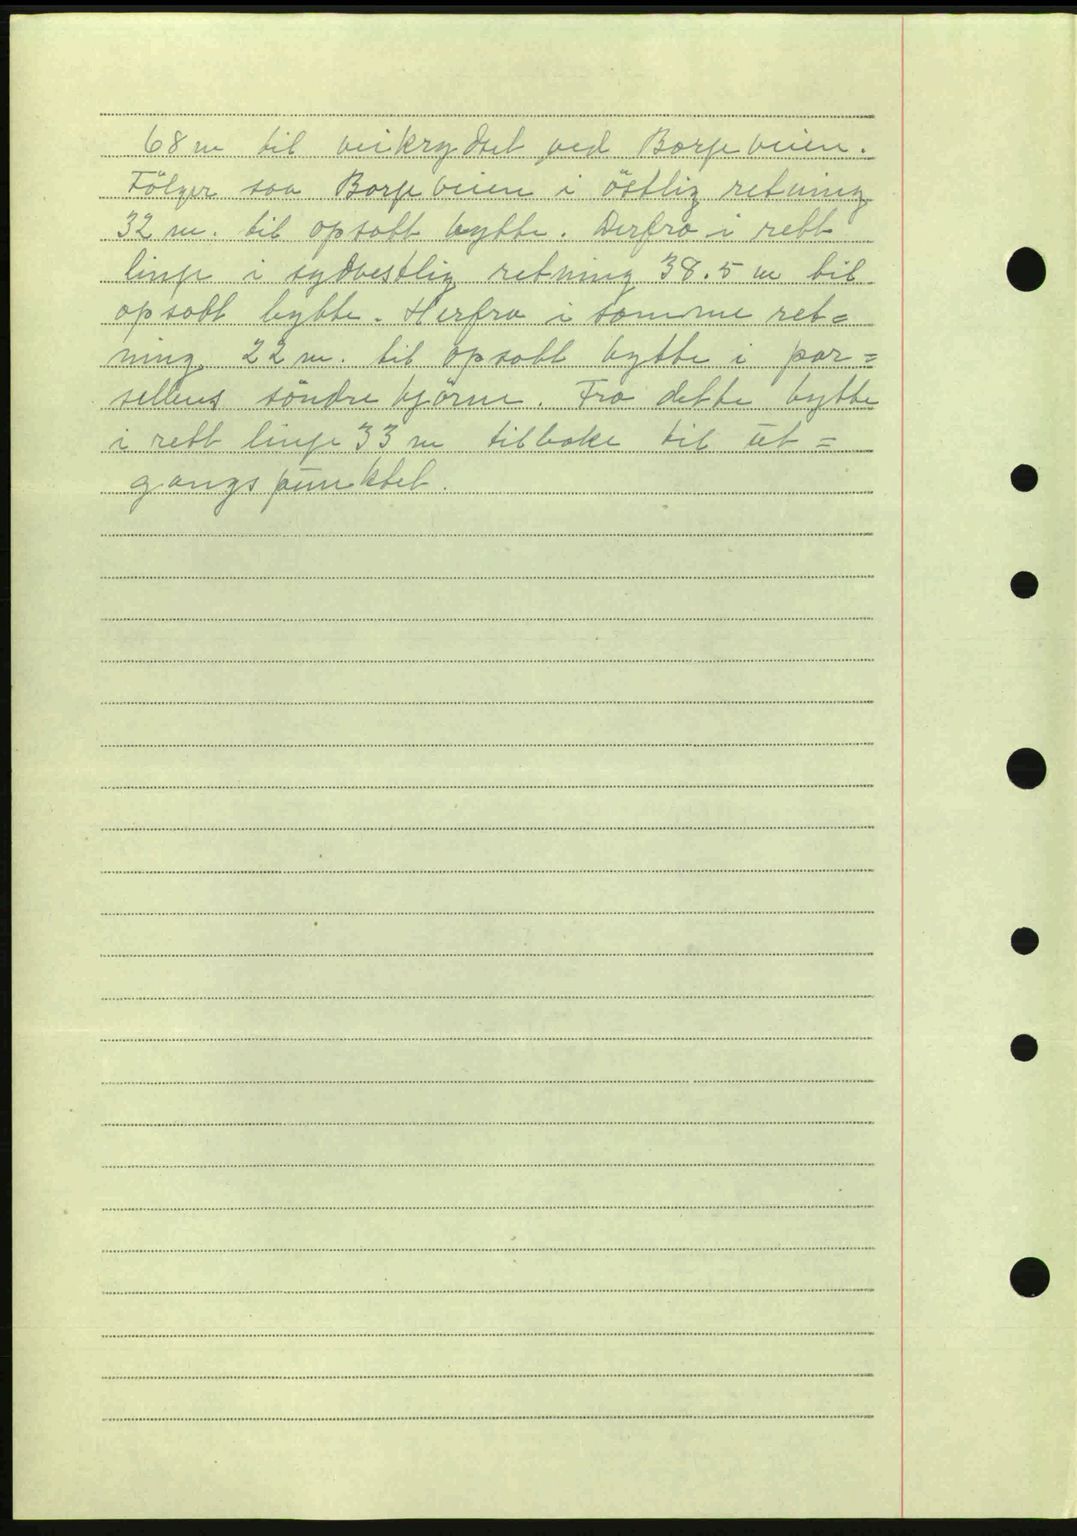 68 m til veikrydset ved Borgeveien.
Fölger saa Borgeveien i östlig retning
32 m. til opsatt bytte. Derfra i rett
linje i sydvestlig retning 38.5 m til
opsatt bytte. Herfra i samme ret=
ning 22 m. til opsatt bytte i par=
sellens söndre hjörne. Fra dette bytte
i rett linje 33 m tilbake til ut=
gangspunktet.